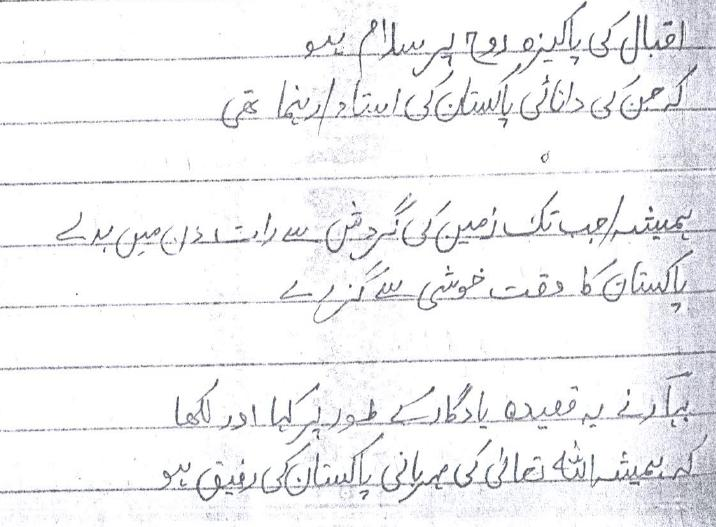 اقبال کی پاکیزہ روح پر سلام ہو
کہ جن کی دانائی پاکستان کی استاد/رہنما تھی
ہمیشہ/جب تک زمین کی گردش سے رات دن میں بدلے
پاکستان کا وقت خوشی سے گزرے
بہار نے یہ قصیدہ یادگار کے طور پر کہا اور لکھا
کہ ہمیشہ اللہ تعالیٰ کی مہربانی پاکستان کی رفیق ہو